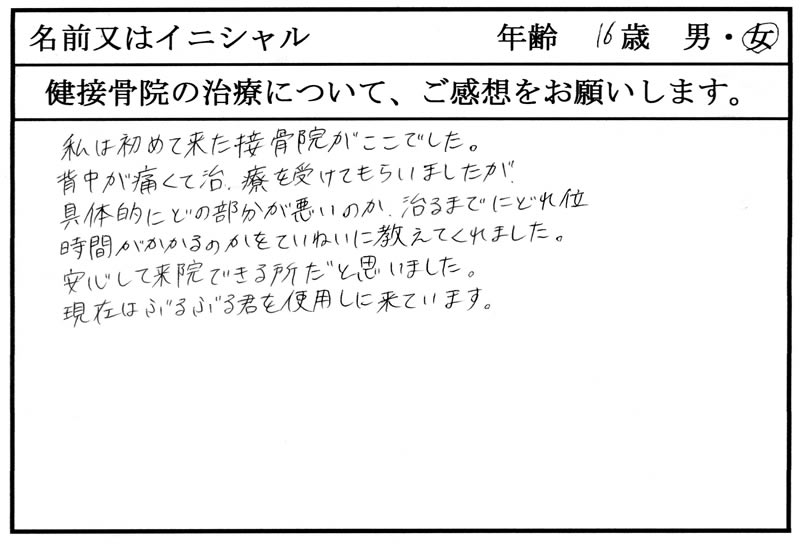 名前又はイニシャル 年齢 16歳 男・女
健接骨院の治療について、ご感想をお願いします。
私は初めて来た接骨院がここでした。
背中が痛くて治療を受けてもらいましたが、
具体的にどの部分が悪いのか、治るまでにどれ位
時間がかかるのかをていねいに教えてくれました。
安心して来院できる所だと思いました。
現在はぶるぶる君を使用しに来ています。